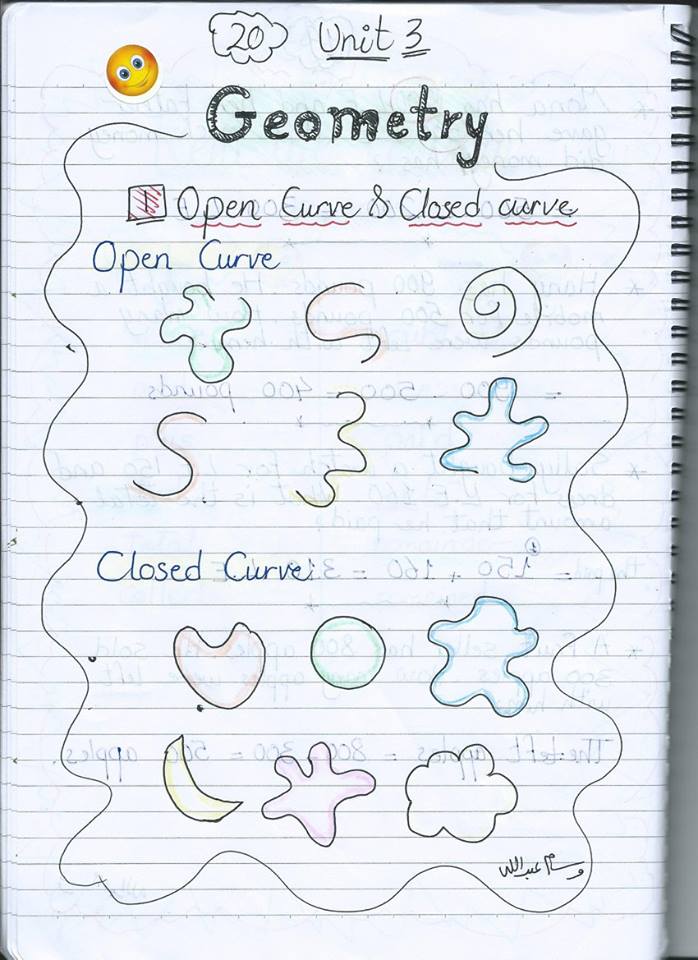 20 Unit 3
Geometry
Open Curve & Closed curve
Open Curve
Closed Curve
وسام عبدالله